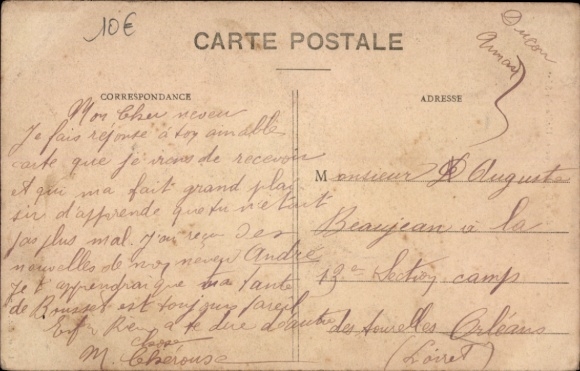 10€
CARTE POSTALE
CORRESPONDANCE
Mon Cher neveu
Je fais réponse à ton aimable
carte que je viens de recevoir
et qui ma fait grand plai-
sir d'apprendre que tu n'était
pas plus mal. J'ai reçu des
nouvelles de mon neveu André
Je t'apprendrai que ta Tante
de Rousset est toujours pareil
Rien à te dire d'autre
M.
ADRESSE
Monsieur Auguste
Beaujean à la
13e Section camp
des tourelles Orléans
(Loiret)